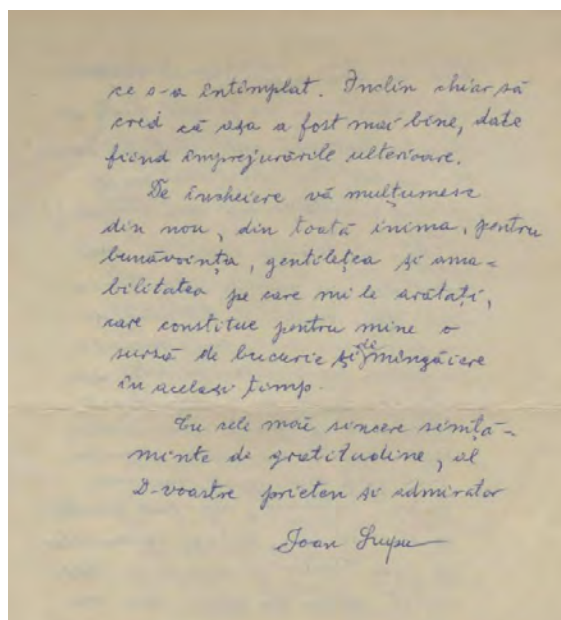 ce s-a întîmplat. Înclin chiar să
cred că așa a fost mai bine, date
fiind împrejurările ulterioare.
De încheiere vă mulțumesc
din nou, din toată inima, pentru
bunăvoința, gentilețea și ama-
bilitatea pe care mi le arătați,
care constitue pentru mine o
sursă de bucurie și de mîngăiere
în același timp.
Cu cele mai sincere simță-
minte de gratitudine, al
D-voastre prieten și admirator
Ioan Lupu